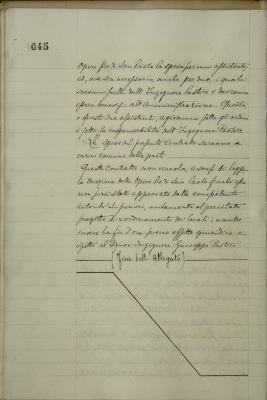 645
Opere Pie di San Paolo la spesa
ed, ove sia necessario, anche per due, i quali
saranno scelti dall'Ingegnere Pastore e dovranno
essere all'Amministrazione. Questo
o questi due assistenti, agiranno sotto gli ordini
e sotto la responsabilità dell'Ingegnere Pastore.
Le spese del presente Contratto saranno a
carico comune delle parti.
Questo Contratto non vincola, a sensi di legge,
la Direzione delle Opere Pie di San Paolo finché esso
non sia stato approvato dalla competente
autorità Superiore, unitamente al prestato
progetto di riordinamento dei locali; mentre
invece ha fin d'ora pieno effetto giuridico ri-
spetto al Signor Ingegnere Giuseppe Pastore
(Fine dell'Allegato)